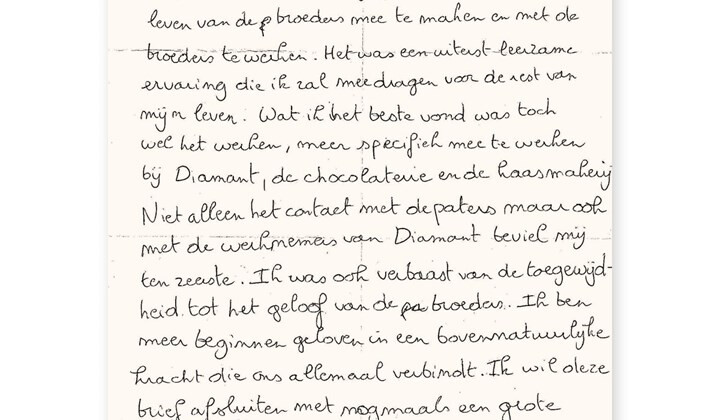 leven van de broeders mee te maken en met de
broeders te werken. Het was een uiterst leerzame
ervaring die ik zal meedragen voor de rest van
mijn leven. Wat ik het beste vond was toch
wel het werken, meer specifiek mee te werken
bij Diamant, de chocolaterie en de kaasmakerij
Niet alleen het contact met de paters maar ook
met de werknemers van Diamant beviel mij
ten zeerste. Ik was ook verbaast van de toegewijd-
heid tot het geloof van de broeders. Ik ben
meer beginnen geloven in een bovennatuurlijke
kracht die ons allemaal verbindt. Ik wil deze
brief afsluiten met nogmaals een grote